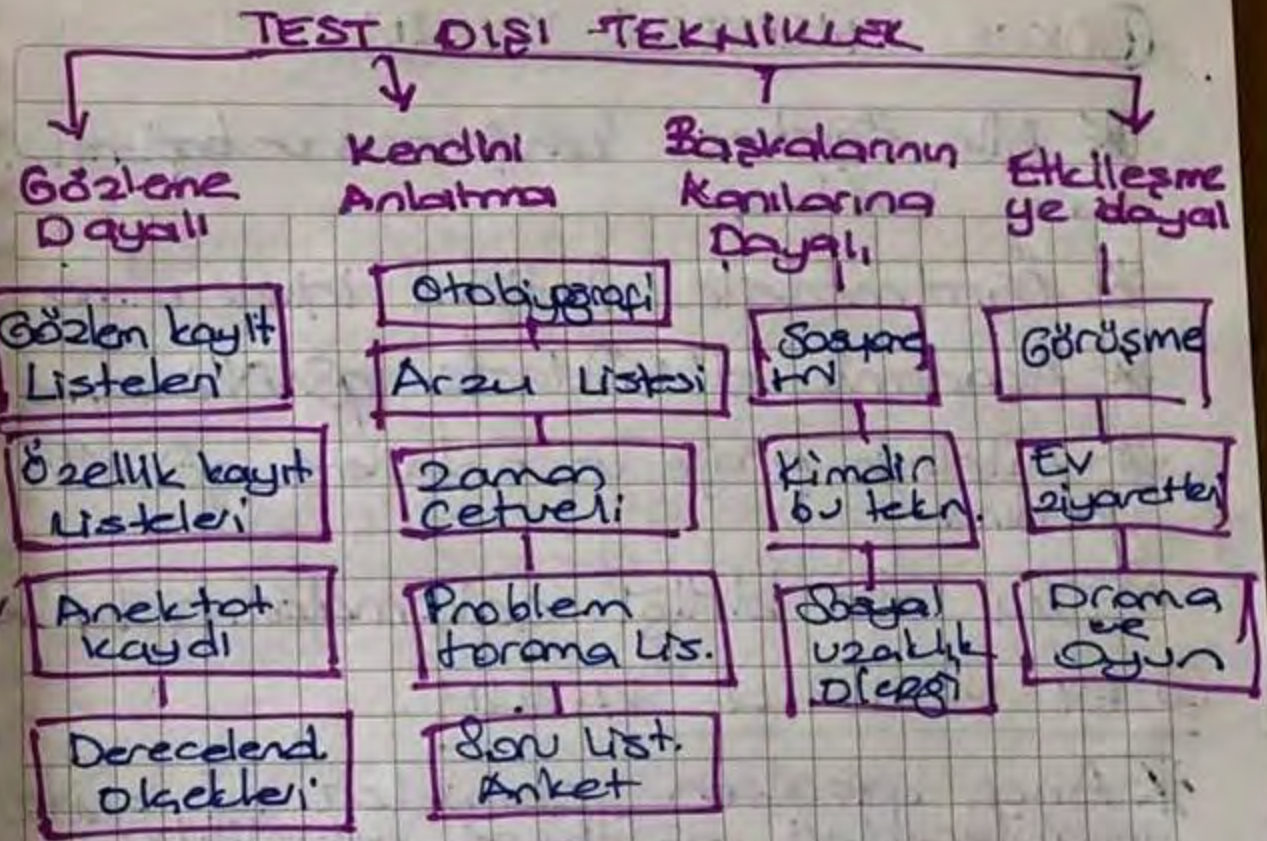 TEST DIŞI TEKNİKLER
Gözleme
Dayalı
Gözlem kayıt
Listeleri
Özellik kayıt
Listeleri
Anektot
kaydı
Derecelend.
Ölçekleri
Kendini
Anlatma
Otobiyografi
Arzu Listesi
Zaman
Cetveli
Problem
tarama Lis.
Soru List.
Anket
Başkalarının
Kanılarına
Dayalı
Sosyome
tri
Kimdir
bu tekn.
Sosyal
uzaklık
Ölçeği
Etkileşme
ye dayal
Görüşme
Ev
ziyaretleri
Drama
ve
Oyun